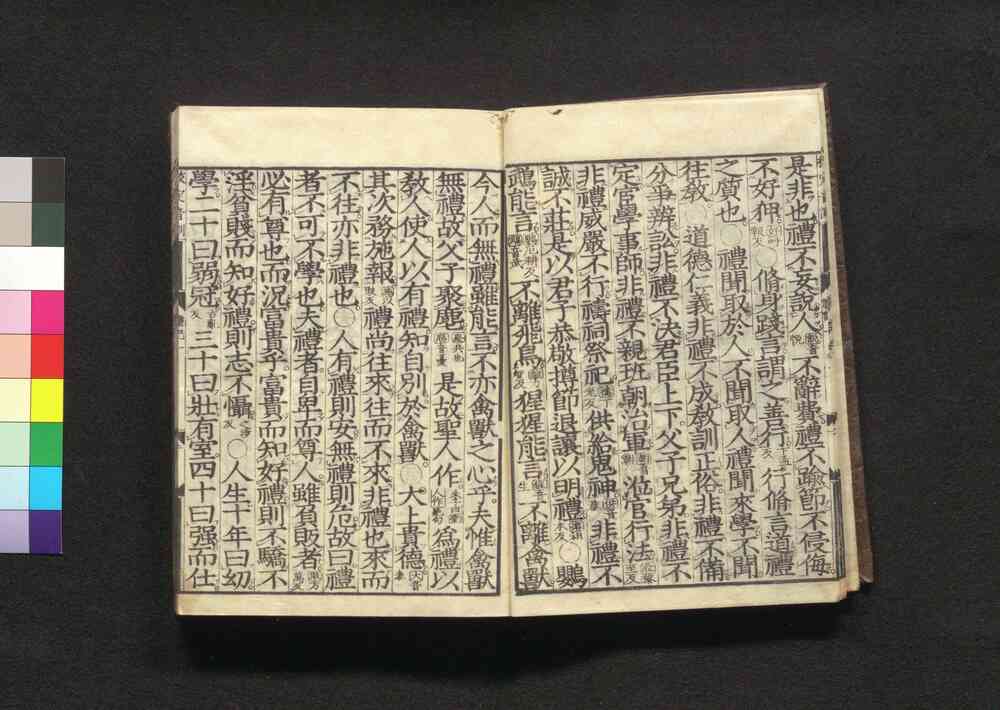 是非也禮不妄說人不辭費禮不踰節不侵侮
不好狎○脩身踐言謂之善行行脩言道禮
之質也○禮聞取於人不聞取人禮聞來學不聞
往敎○道德仁義非禮不成敎訓正俗非禮不備
分爭辨訟非禮不決君臣上下父子兄弟非禮不
定宦學事師非禮不親班朝治軍涖官行法
非禮威嚴不行禱祠祭祀供給鬼神非禮不
誠不莊是以君子恭敬撙節退讓以明禮○鸚
鵡能言不離飛鳥猩猩能言不離禽獸
今人而無禮雖能言不亦禽獸之心乎夫惟禽獸
無禮故父子聚麀是故聖人作爲禮以
敎人使人以有禮知自別於禽獸○大上貴德
其次務施報禮尚往來往而不來非禮也來而
不往亦非禮也○人有禮則安無禮則危故曰禮
者不可不學也夫禮者自卑而尊人雖負販者
必有尊也而況富貴乎富貴而知好禮則不驕不
淫貧賤而知好禮則志不懾○人生十年曰幼
學二十曰弱冠三十曰壯有室四十曰强而仕